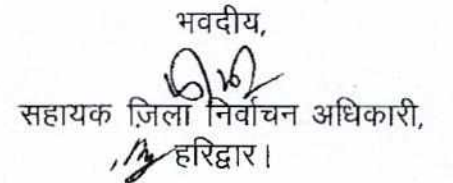 भवदीय,
सहायक ज़िला निर्वाचन अधिकारी,
हरिद्वार।